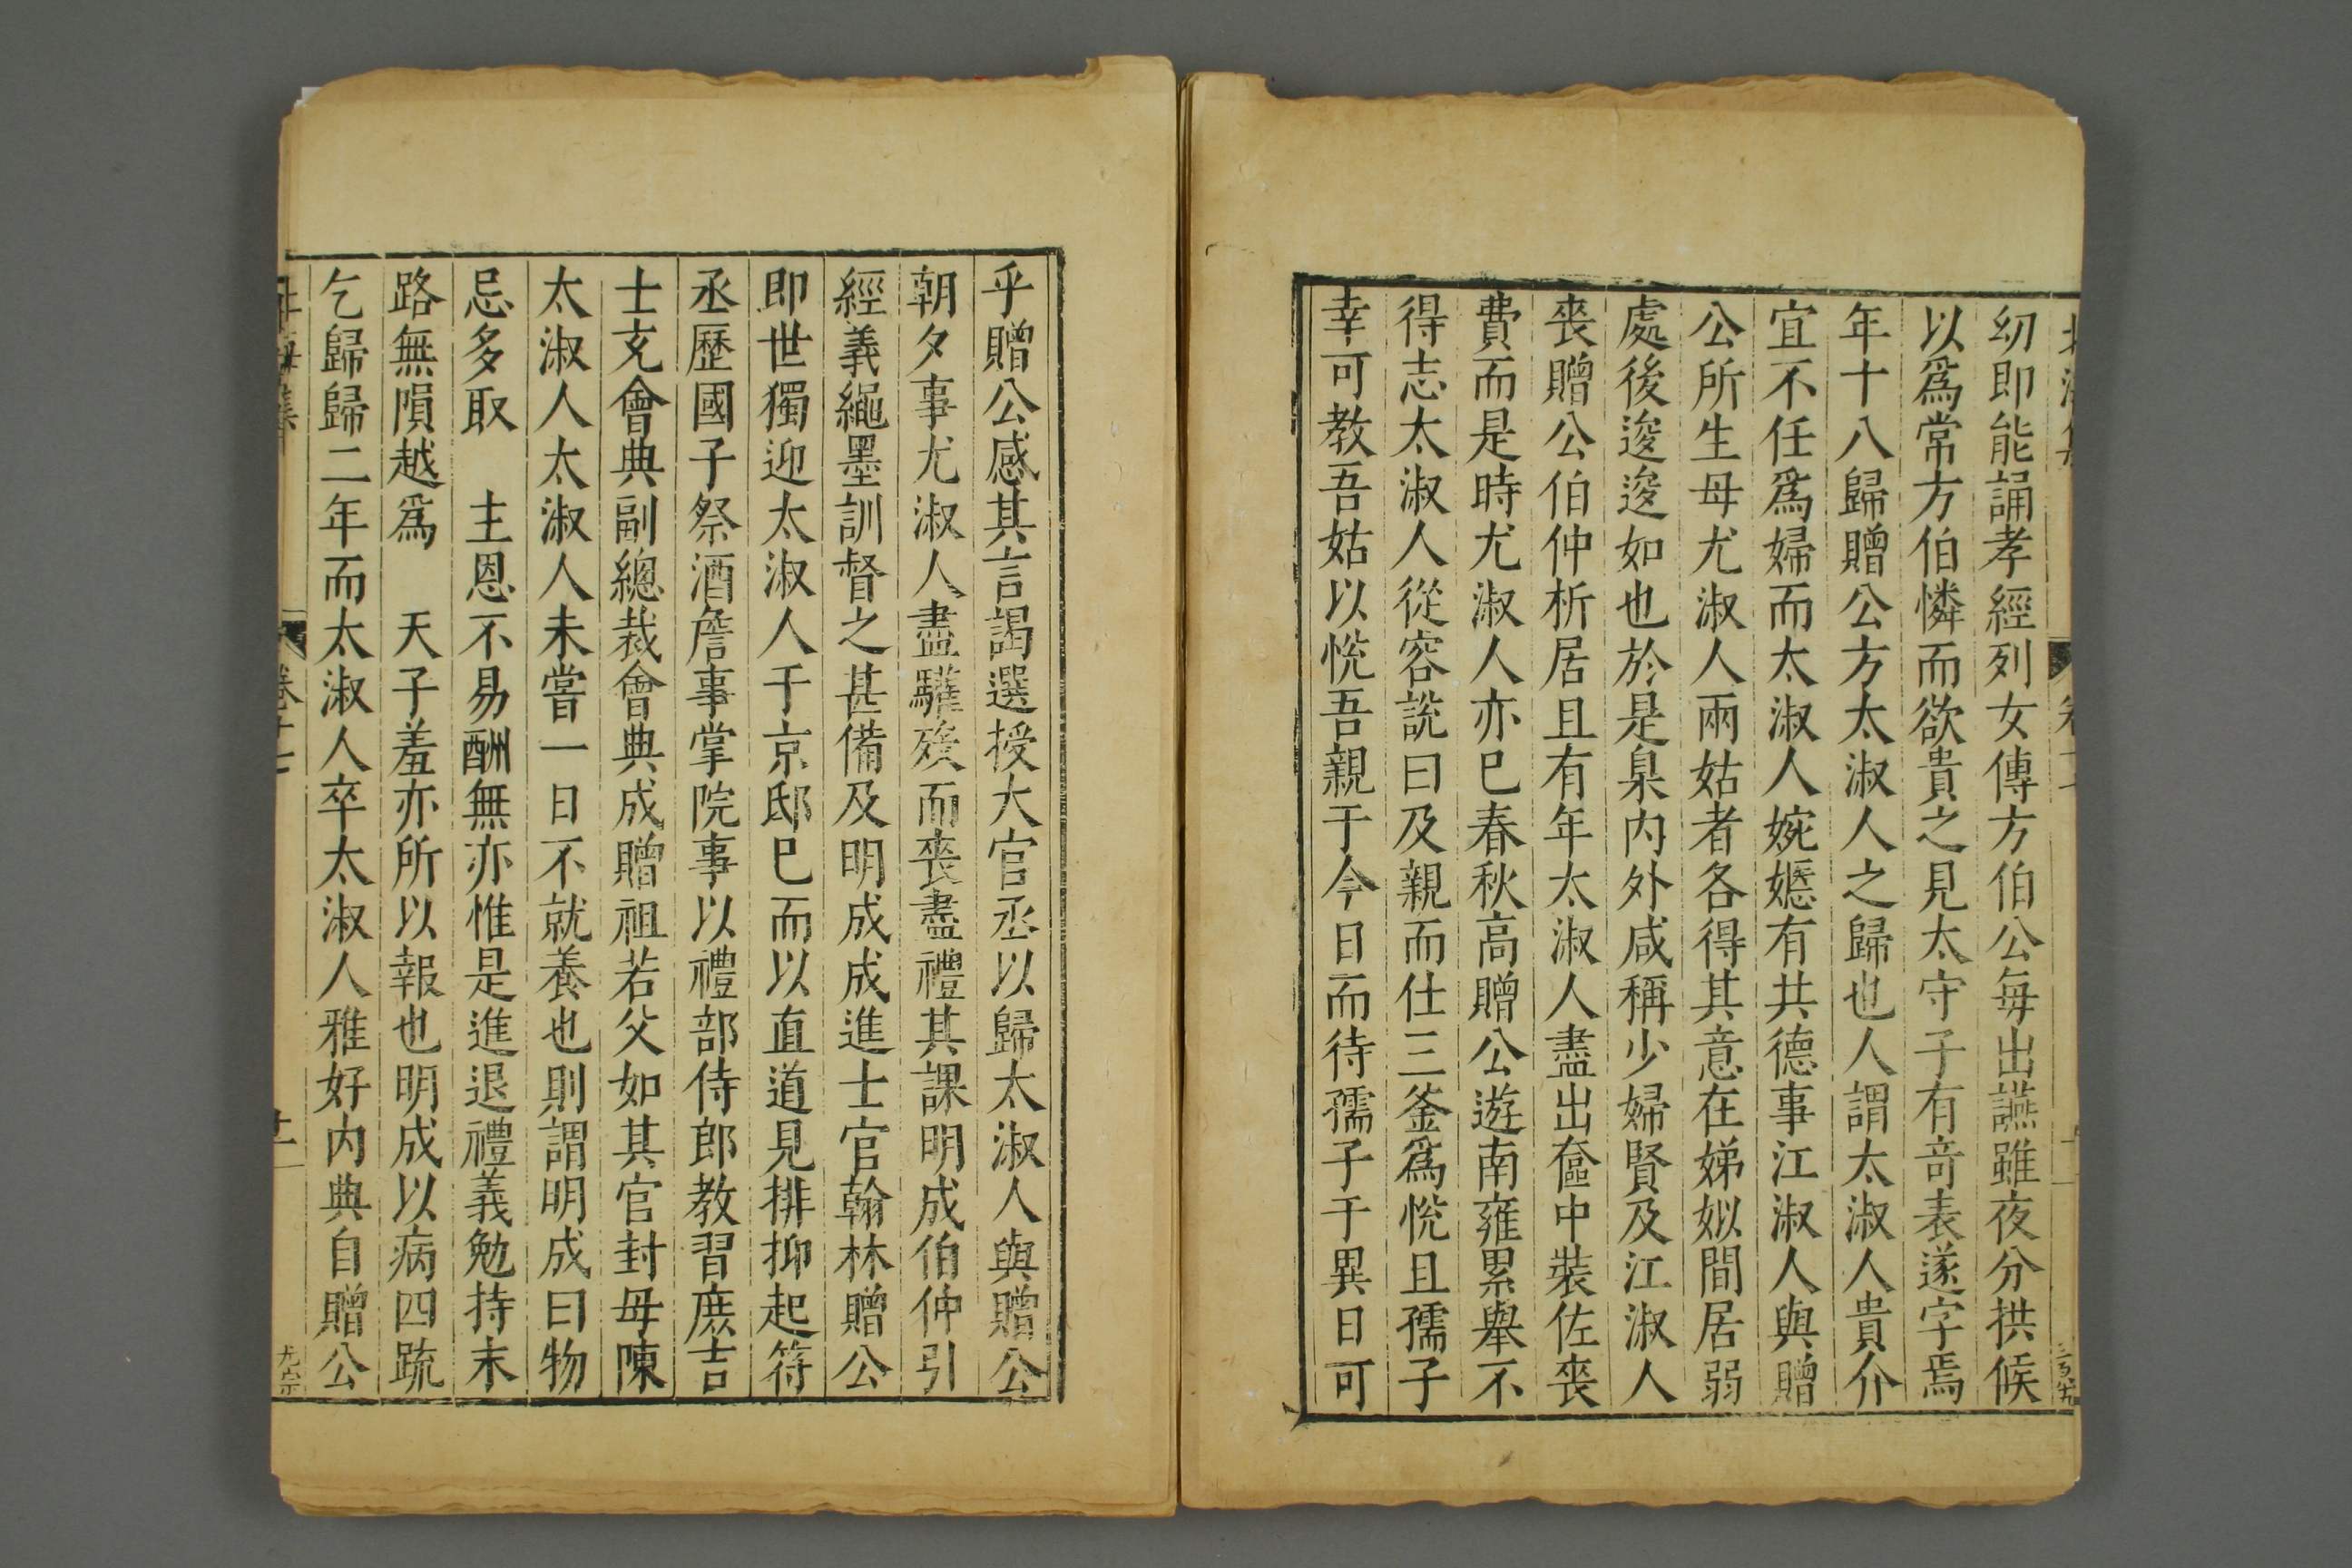 幼即能誦孝經列女傳方伯公每出讌雖夜分拱候
以爲常方伯憐而欲貴之見太守子有竒表遂字焉
年十八歸贈公方太淑人之歸也人謂太淑人貴介
宜不任爲婦而太淑人婉嫕有共德事江淑人與贈
公所生母尤淑人兩姑者各得其意在娣姒間居弱
處後逡逡如也於是臬内外咸稱少婦賢及江淑人
喪贈公伯仲析居且有年太淑人盡出奩中裝佐喪
費而是時尤淑人亦巳春秋高贈公遊南雍累舉不
得志太淑人從容説曰及親而仕三釜爲悦且孺子
幸可教吾姑以悦吾親于今日而待孺子于異日可
乎贈公感其言謁選授大官丞以歸太淑人與贈公
朝夕事尤淑人盡驩殁而喪盡禮其課明成伯仲引
經義繩墨訓督之甚備及明成成進士官翰林贈公
即世獨迎太淑人于京邸巳而以直道見排抑起符
丞歷國子祭酒詹事掌院事以禮部侍郎教習庶吉
士充會典副總裁會典成贈祖若父如其官封母陳
太淑人太淑人未嘗一日不就養也則謂明成曰物
忌多取　主恩不易酬無亦惟是進退禮義勉持末
路無隕越爲　天子羞亦所以報也明成以病四疏
乞歸歸二年而太淑人卒太淑人雅好内典自贈公
卷十七